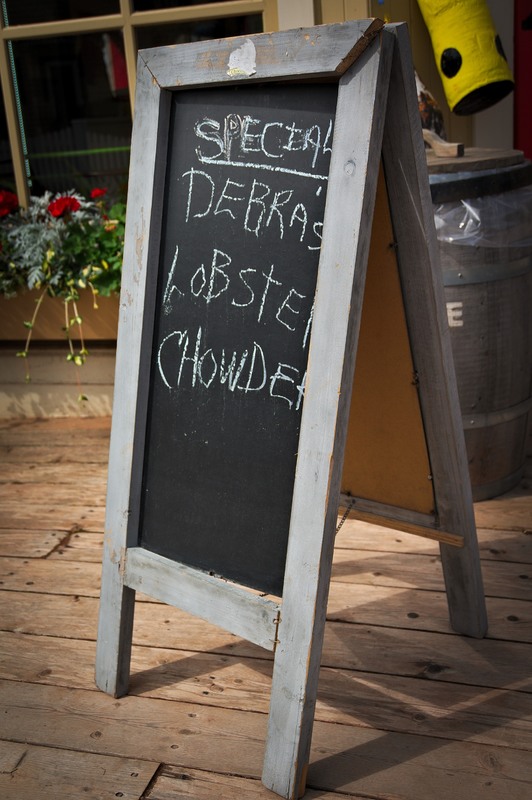 SPECIAL
DEBRA'S
LOBSTER
CHOWDER
E